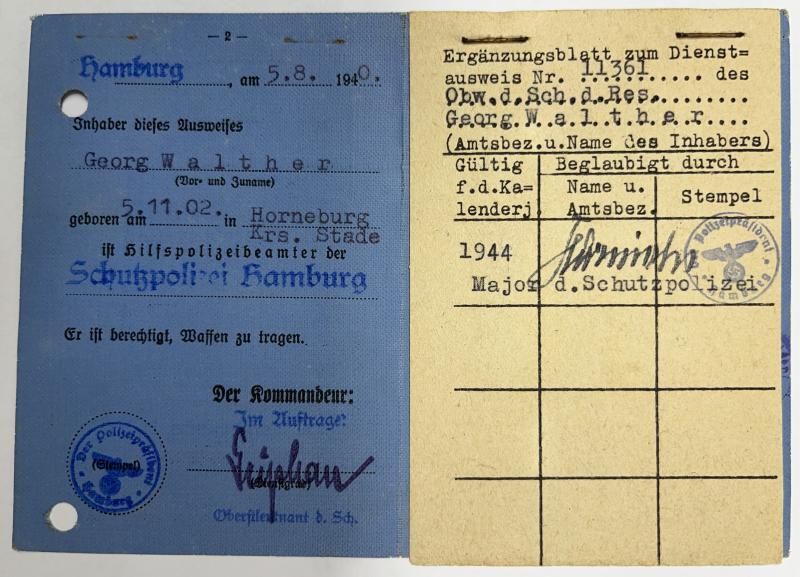 — 2 —
Hamburg, am 5.8. 1940.
Inhaber dieses Ausweises
Georg Walther
(Vor- und Zuname)
geboren am 5.11.02. in Horneburg
Krs. Stade
ist Hilfspolizeibeamter der
Schutzpolizei Hamburg
Er ist berechtigt, Waffen zu tragen.
Der Kommandeur:
Im Auftrage:
Der Polizeipräsident
Hamburg
(Stempel)
(Dienstgrad)
Oberstleutnant d. Sch.
Ergänzungsblatt zum Dienst=
ausweis Nr. 11361 des
Obw.d.Sch.d.Res.
Georg Walther
(Amtsbez.u.Name des Inhabers)
Gültig
f.d.Ka=
lenderj.
Beglaubigt durch
Name u.
Amtsbez.
Stempel
1944
Major d.Schutzpolizei
Polizeipräsident
Hamburg